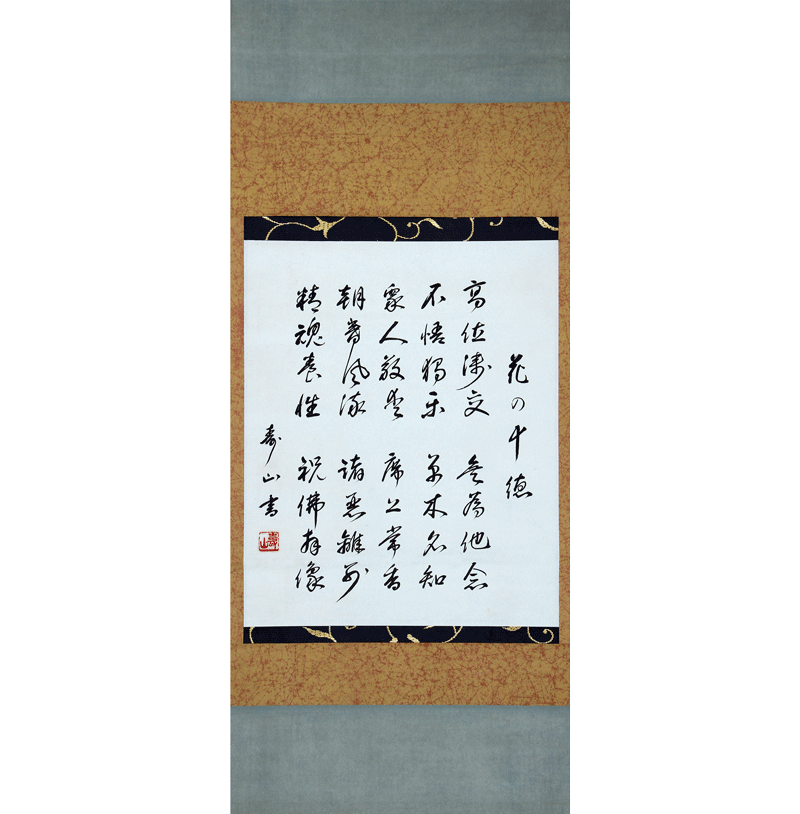 花の十徳
高位 交　無為他念
不悟独楽　草木名知
衆人敬愛　席上常香
朝暮風流　諸悪離別
精魂養性　祝佛拝像
寿山書
壽山